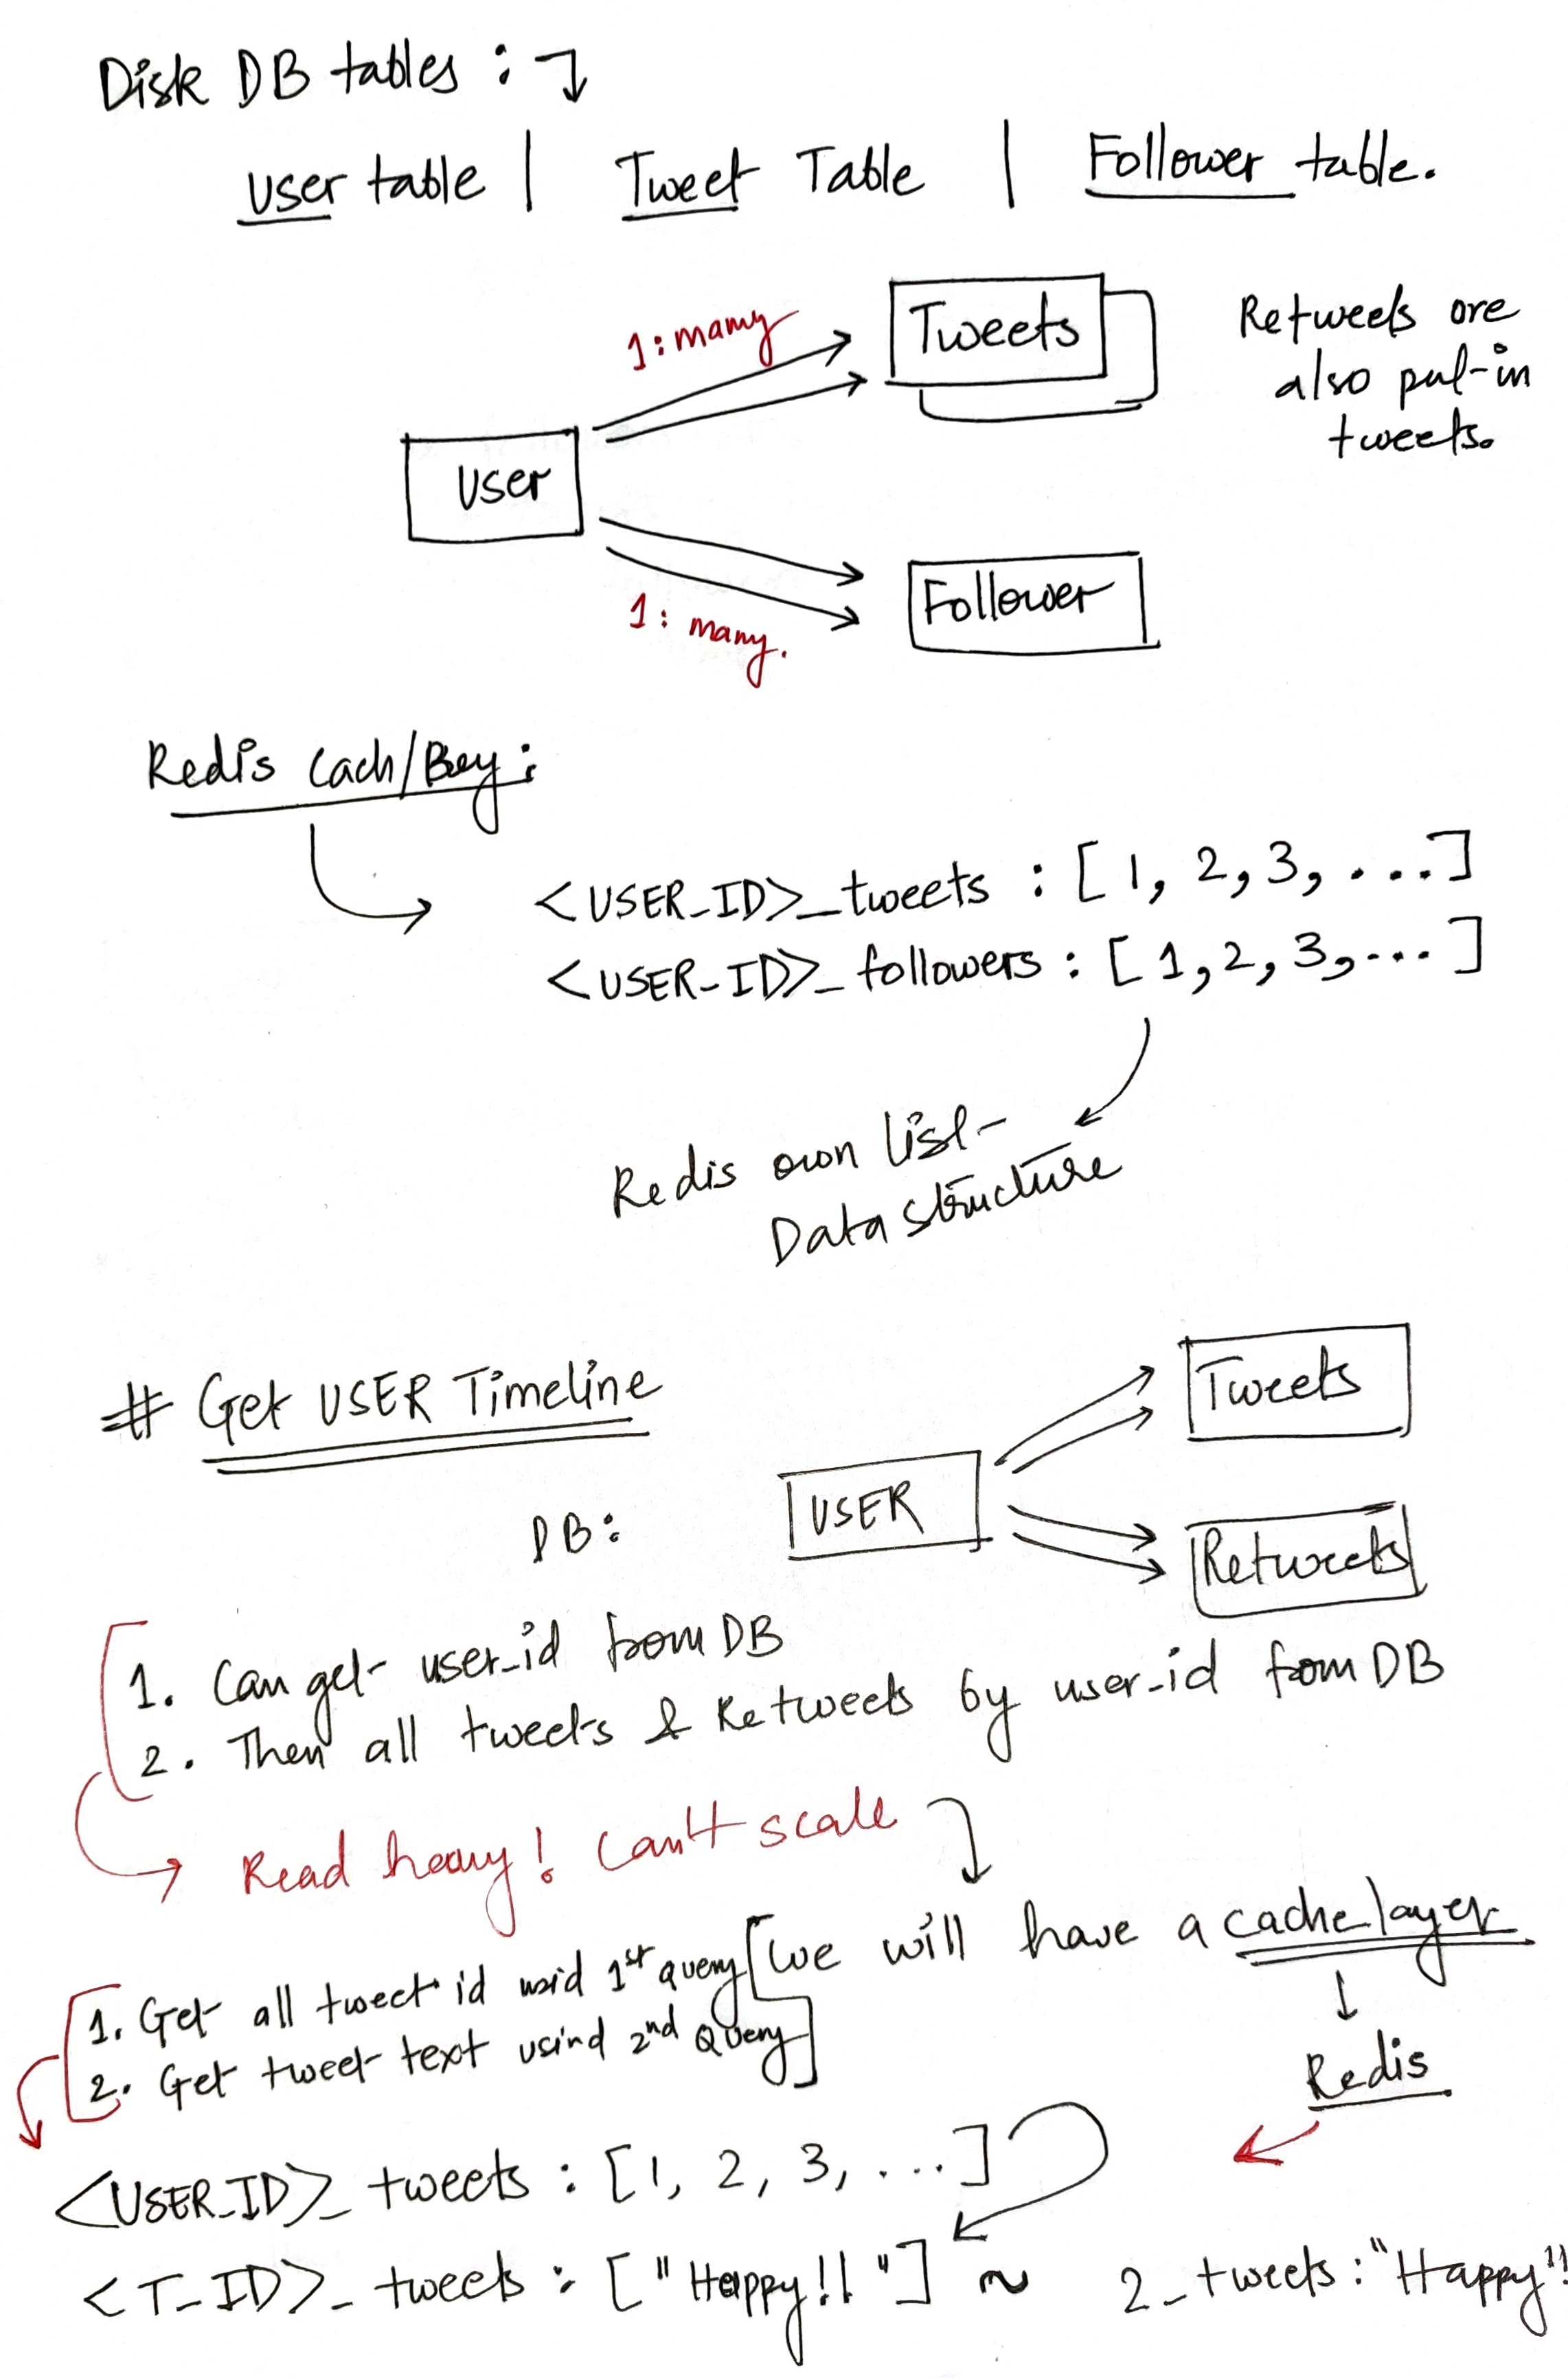 Disk DB tables :
User table | Tweet Table | Follower table.
1: many
Tweets
Retweets are
also put-in
tweets.
User
Follower
1: many.
Redis Cach/Bey:
<USER_ID>_tweets : [ 1, 2, 3, ....]
<USER_ID>_followers : [ 1, 2, 3, ... ]
Redis own list
Data structure
# Get USER Timeline
Tweets
DB:
USER
Retweets
1. Can get user_id from DB
2. Then all tweets & Retweets by user_id from DB
Read heavy! Can't scale
We will have a cache layer
1. Get all tweet id 1st query
2. Get tweet text usind 2nd Query
Redis
<USER_ID>_ tweets : [1, 2, 3, ....]
<T_ID>_ tweets : ["Happy!! "] ~ 2_tweets : "Happy!!